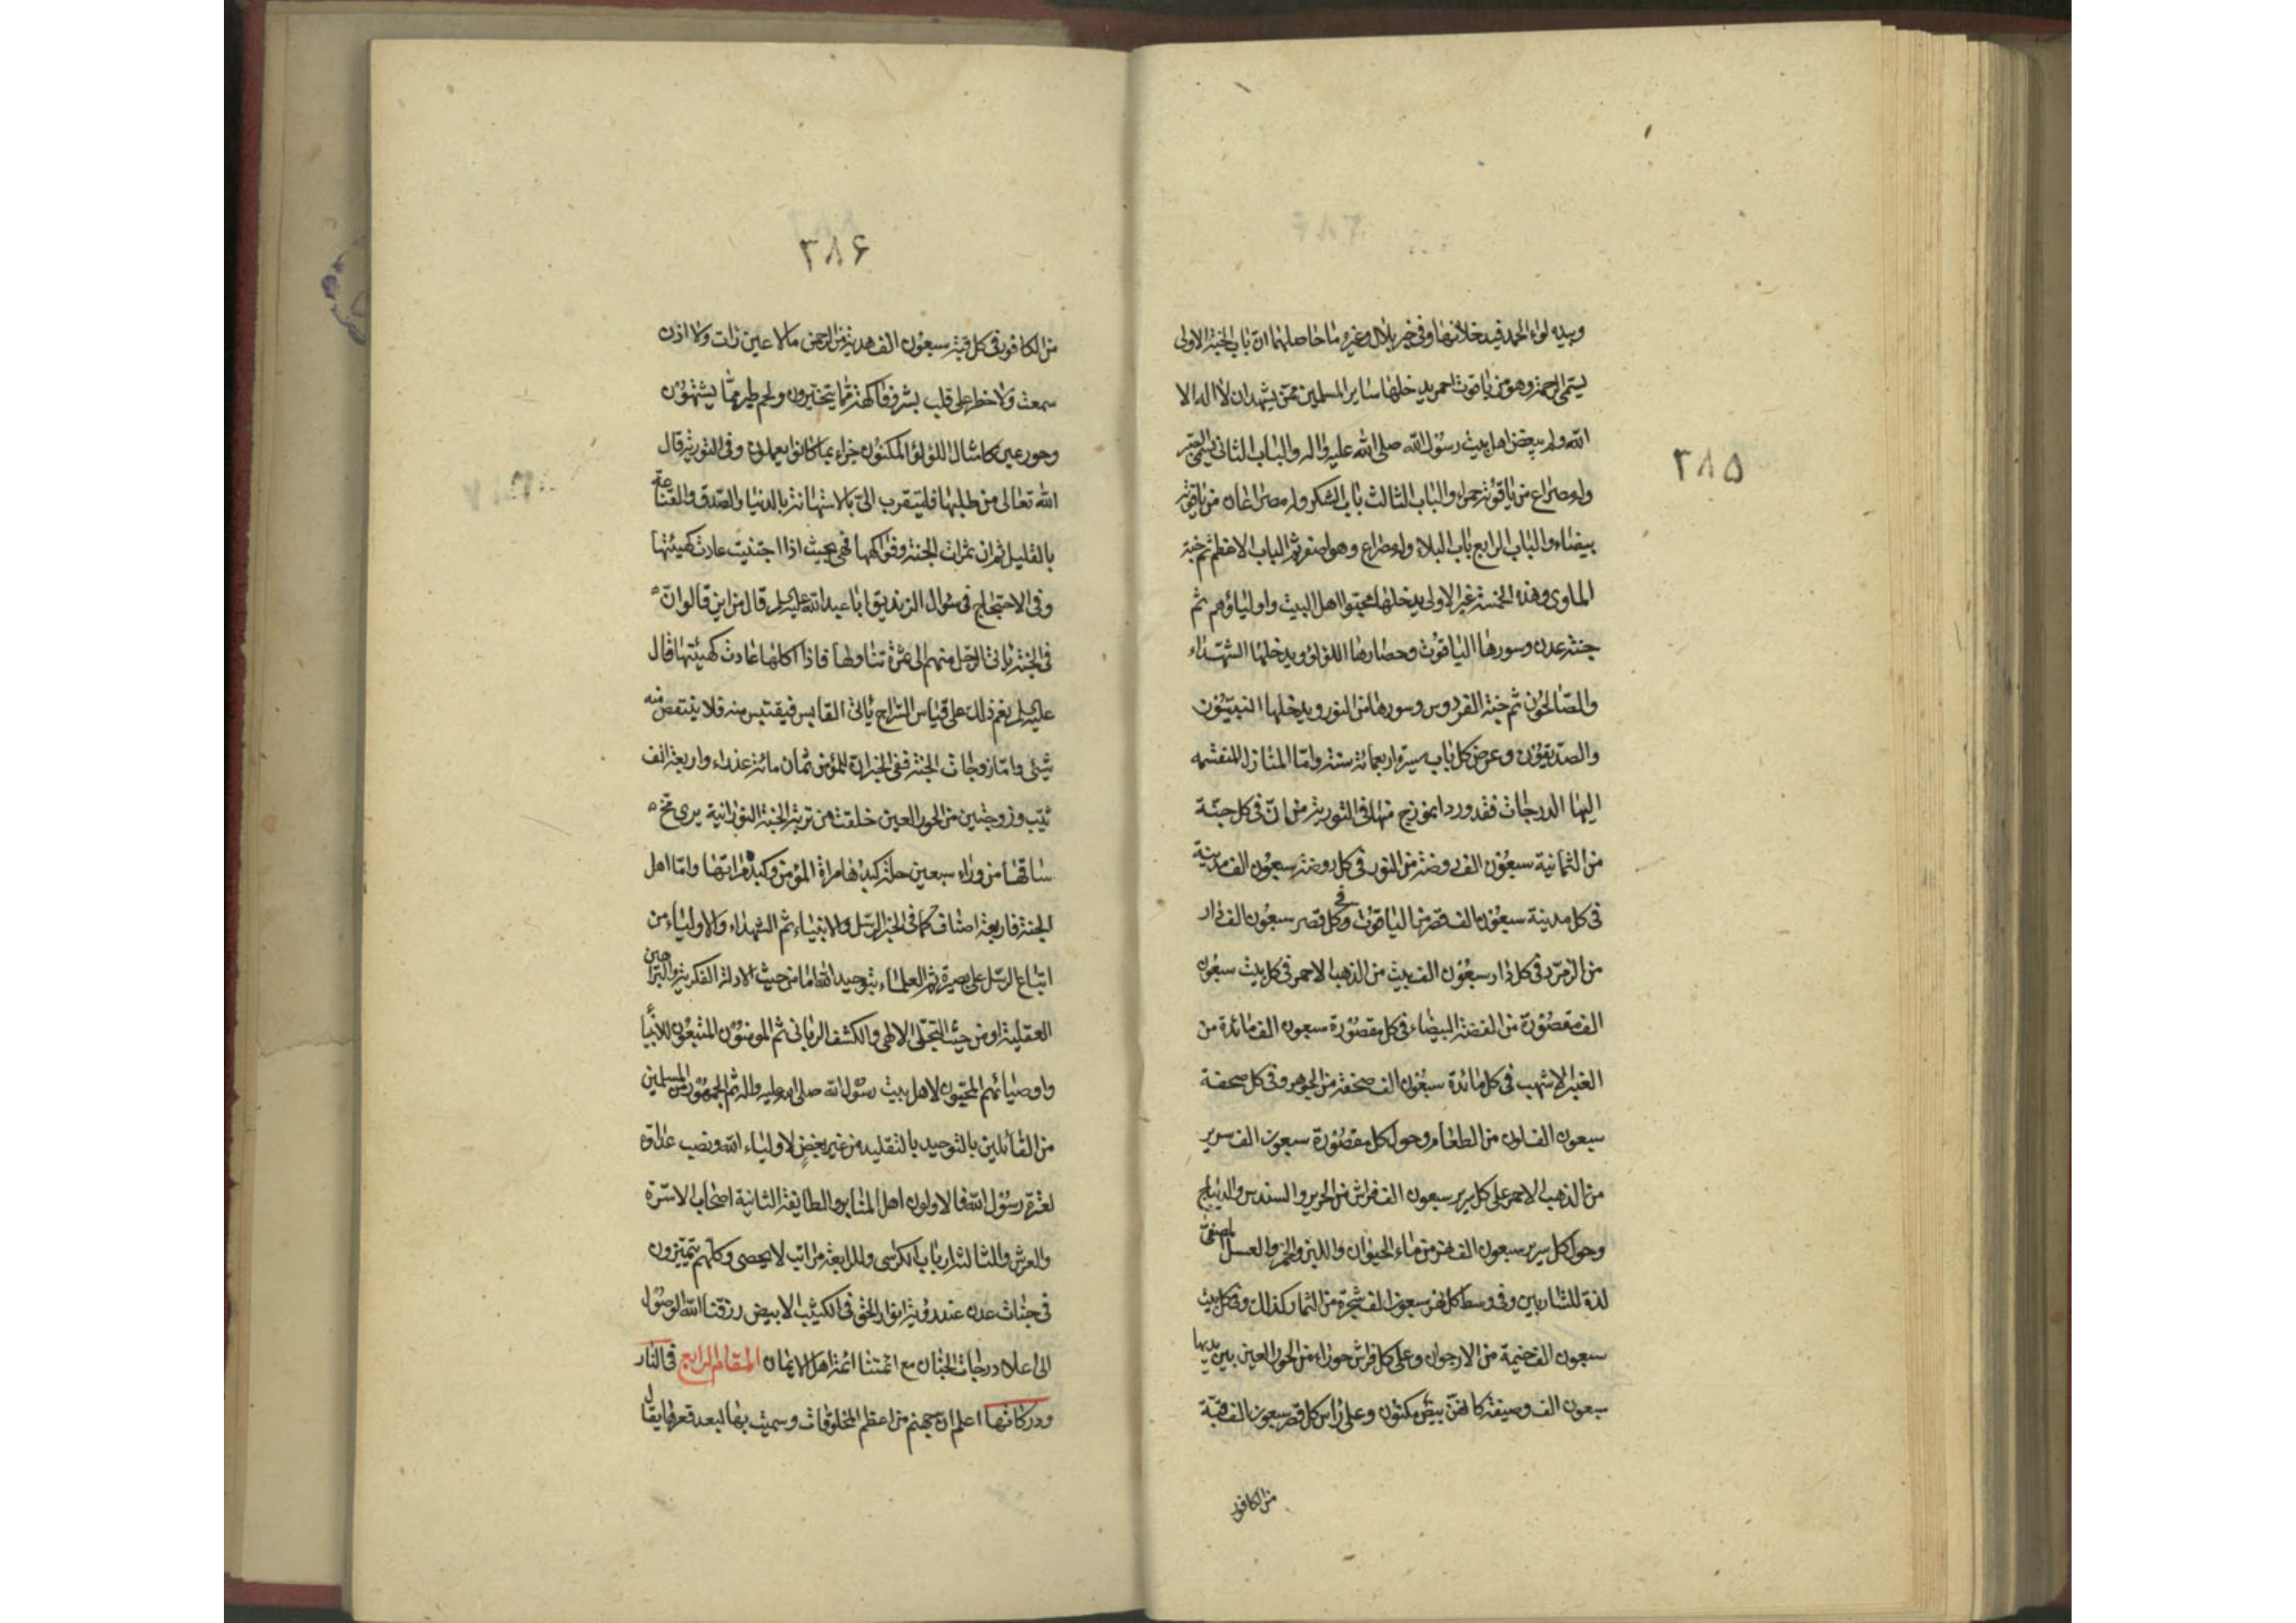 ۳۸۵
وبيده لواء الحمد فيدخلانها وفي خبر بلال وغيره ما حاصلهما ان باب الجنة الاولى
يسمى الرحمة وهو من ياقوت احمر يدخلها ساير المسلمين ممن يشهد ان لا اله الا
الله ولم يبغض اهل بيت رسول الله صلى الله عليه واله والباب الثاني يسمى الصبر
وله مصراع من ياقوتة حمراء والباب الثالث باب الشكر وله مصراعان من ياقوتة
بيضاء والباب الرابع باب البلاء وله مصراع وهو اصغر ثم الباب الاعظم ثم جنة
الماوى وهذه الخمسة غير الاولى يدخلها محبوا اهل البيت واولياؤهم ثم
جنة عدن وسورها الياقوت وحصارها اللؤلؤ ويدخلها الشهداء
والصالحون ثم جنة الفردوس وسورها من النور ويدخلها النبيون
والصديقون وعرض كل باب مسيرة اربعمائة سنة واما المنازل المنقسمه
اليها الدرجات فقد ورد انموزج منها في التورية من ان في كل جنة
من الثمانية سبعون الف روضة من النور في كل روضة سبعون الف مدينة
في كل مدينة سبعون الف قصر من الياقوت وفي كل قصر سبعون الف دار
من الزمرد في كل دار سبعون الف بيت من الذهب الاحمر في كل بيت سبعون
الف مقصورة من الفضة البيضاء في كل مقصورة سبعون الف مائدة من
العنبر الاشهب في كل مائدة سبعون الف صحفة من الجوهر وفي كل صحفة
سبعون الف لون من الطعام وحول كل مقصورة سبعون الف سرير
من الذهب الاحمر على كل سرير سبعون الف فراش من الحرير والسندس والديباج
وحول كل سرير سبعون الف نهر من ماء الحيوان واللبن والخمر والعسل المصفى
لذة للشاربين وفي وسط كل نهر سبعون الف شجرة من الثمار وكذلك وفي كل بيت
سبعون الف خيمة من الارجوان وعلى كل فراش حوراء من الحور العين بين يديها
سبعون الف وصيفة كانهن بيض مكنون وعلى راس كل قصر سبعون الف قبة
من الكافور
۳۸۶
من الكافور في كل قبة سبعون الف هدية من الرحمن مالا عين رات ولا اذن
سمعت ولا خطر على قلب بشر وفاكهة مما يتخيرون ولحم طير مما يشتهون
وحور عين كامثال اللؤلؤ المكنون جزاء بما كانوا يعملون وفي التورية قال
الله تعالى من طلبها فليتقرب الى بالاستهانة بالدنيا والصدق والقناعة
بالقليل ثم ان ثمرات الجنة وفواكهها فهي بحيث اذا اجتنيت عادت كهيئتها
وفي الاحتجاج في سؤال الزنديق ابا عبد الله عليه السلم قال من اين قالوا ان
في الجنة ياتي الرجل منهم الى ثمرة تناولها فاذا اكلها عادت كهيئتها قال
عليه السلم نعم ذلك على قياس السراج ياتي القابس فيقتبس منه فلا ينتقص منه
شيئي واما زوجات الجنة ففي الخبر ان للمؤمن ثمان مائة عذراء واربعة الف
ثيب وزوجتين من الحور العين خلقت من تربة الجنة النورانية يرى مخ
ساقها من وراء سبعين حلة كبدها مراة المؤمن وكبده مراتها واما اهل
الجنة فاربعة اصناف كما في الخبر الرسل والانبياء ثم الشهداء والاولياء من
اتباع الرسل على بصيرة ثم العلماء بتوحيد الله اما من حيث الادلة الفكرية والبراهين
العقلية او من حيث التجلى الالهي والكشف الرباني ثم المومنون المتبعون للانبيا
واوصيائهم المحبون لاهل بيت رسول الله صلى الله عليه واله ثم الجمهور من المسلمين
من القائلين بالتوحيد بالتقليد من غير بغض لاولياء الله ونصب عداوة
لعترة رسول الله فالاولون اهل المنابر والطايفة الثانية اصحاب الاسرة
والعرش والثالثة ارباب الكرسى وللرابعة مراتب لا يحصى وكلهم يتميزون
في جنات عدن عند رؤية انوار الحق في الكثيب الابيض رزقنا الله الوصول
الى اعلا درجات الجنان مع ائمتنا ائمة اهل الايمان المقام الرابع في النار
ودركاتها اعلم ان جهنم من اعظم المخلوقات وسميت بها لبعد قعرها يقال